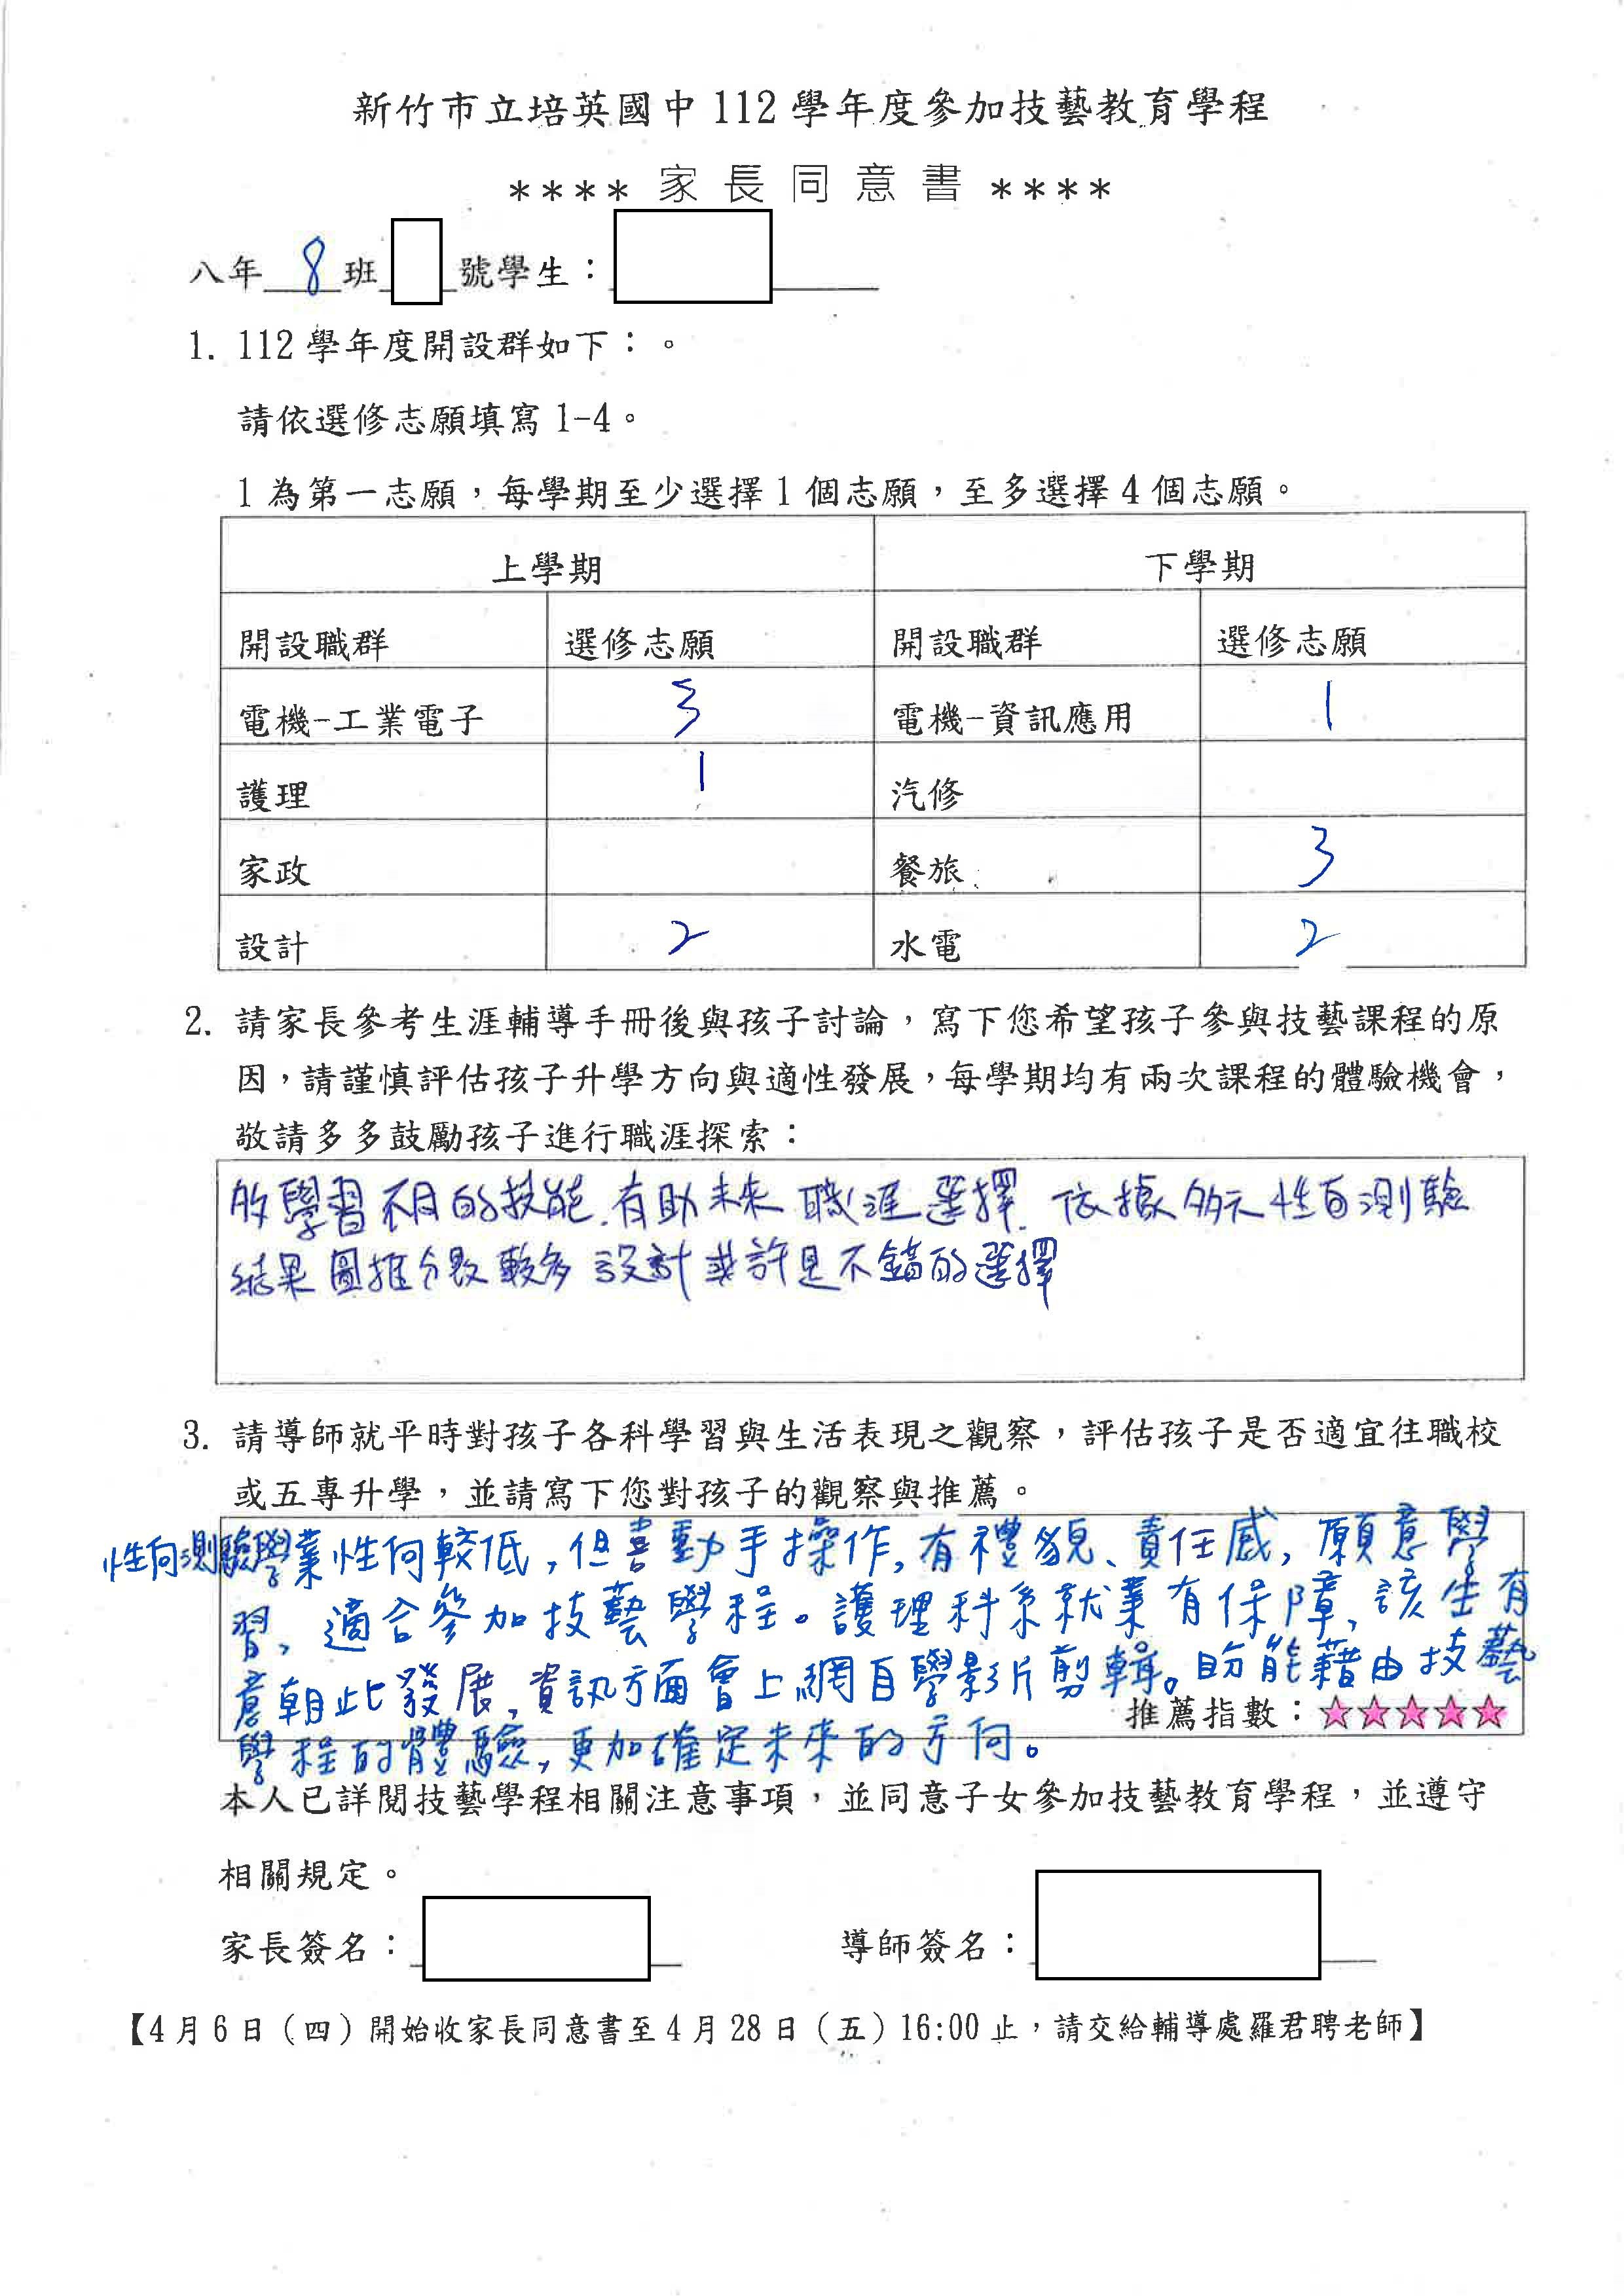 新竹市立培英國中112學年度參加技藝教育學程
**** 家長同意書 ****
八年 8 班 號學生:
1. 112學年度開設群如下:。
請依選修志願填寫1-4。
1為第一志願,每學期至少選擇1個志願,至多選擇4個志願。
上學期 下學期
開設職群 選修志願 開設職群 選修志願
電機-工業電子 3 電機-資訊應用 1
護理 1 汽修
家政 餐旅 3
設計 2 水電 2
2. 請家長參考生涯輔導手冊後與孩子討論,寫下您希望孩子參與技藝課程的原
因,請謹慎評估孩子升學方向與適性發展,每學期均有兩次課程的體驗機會,
敬請多多鼓勵孩子進行職涯探索:
學習不同的技能.有助未來職涯選擇.依據多元性向測驗
結果圖推分數較多設計或許是不錯的選擇
3. 請導師就平時對孩子各科學習與生活表現之觀察,評估孩子是否適宜往職校
或五專升學,並請寫下您對孩子的觀察與推薦。
性向測驗學業性向較低,但喜動手操作,有禮貌、責任感,願意學
習,適合參加技藝學程。護理科系就業有保障,該生有
意朝此發展,資訊方面會上網自學影片剪輯。盼能藉由技藝
推薦指數:☆☆☆☆☆
學程的體驗,更加確定未來的方向。
本人已詳閱技藝學程相關注意事項,並同意子女參加技藝教育學程,並遵守
相關規定。
家長簽名: 導師簽名:
【4月6日(四)開始收家長同意書至4月28日(五)16:00止,請交給輔導處羅君聘老師】